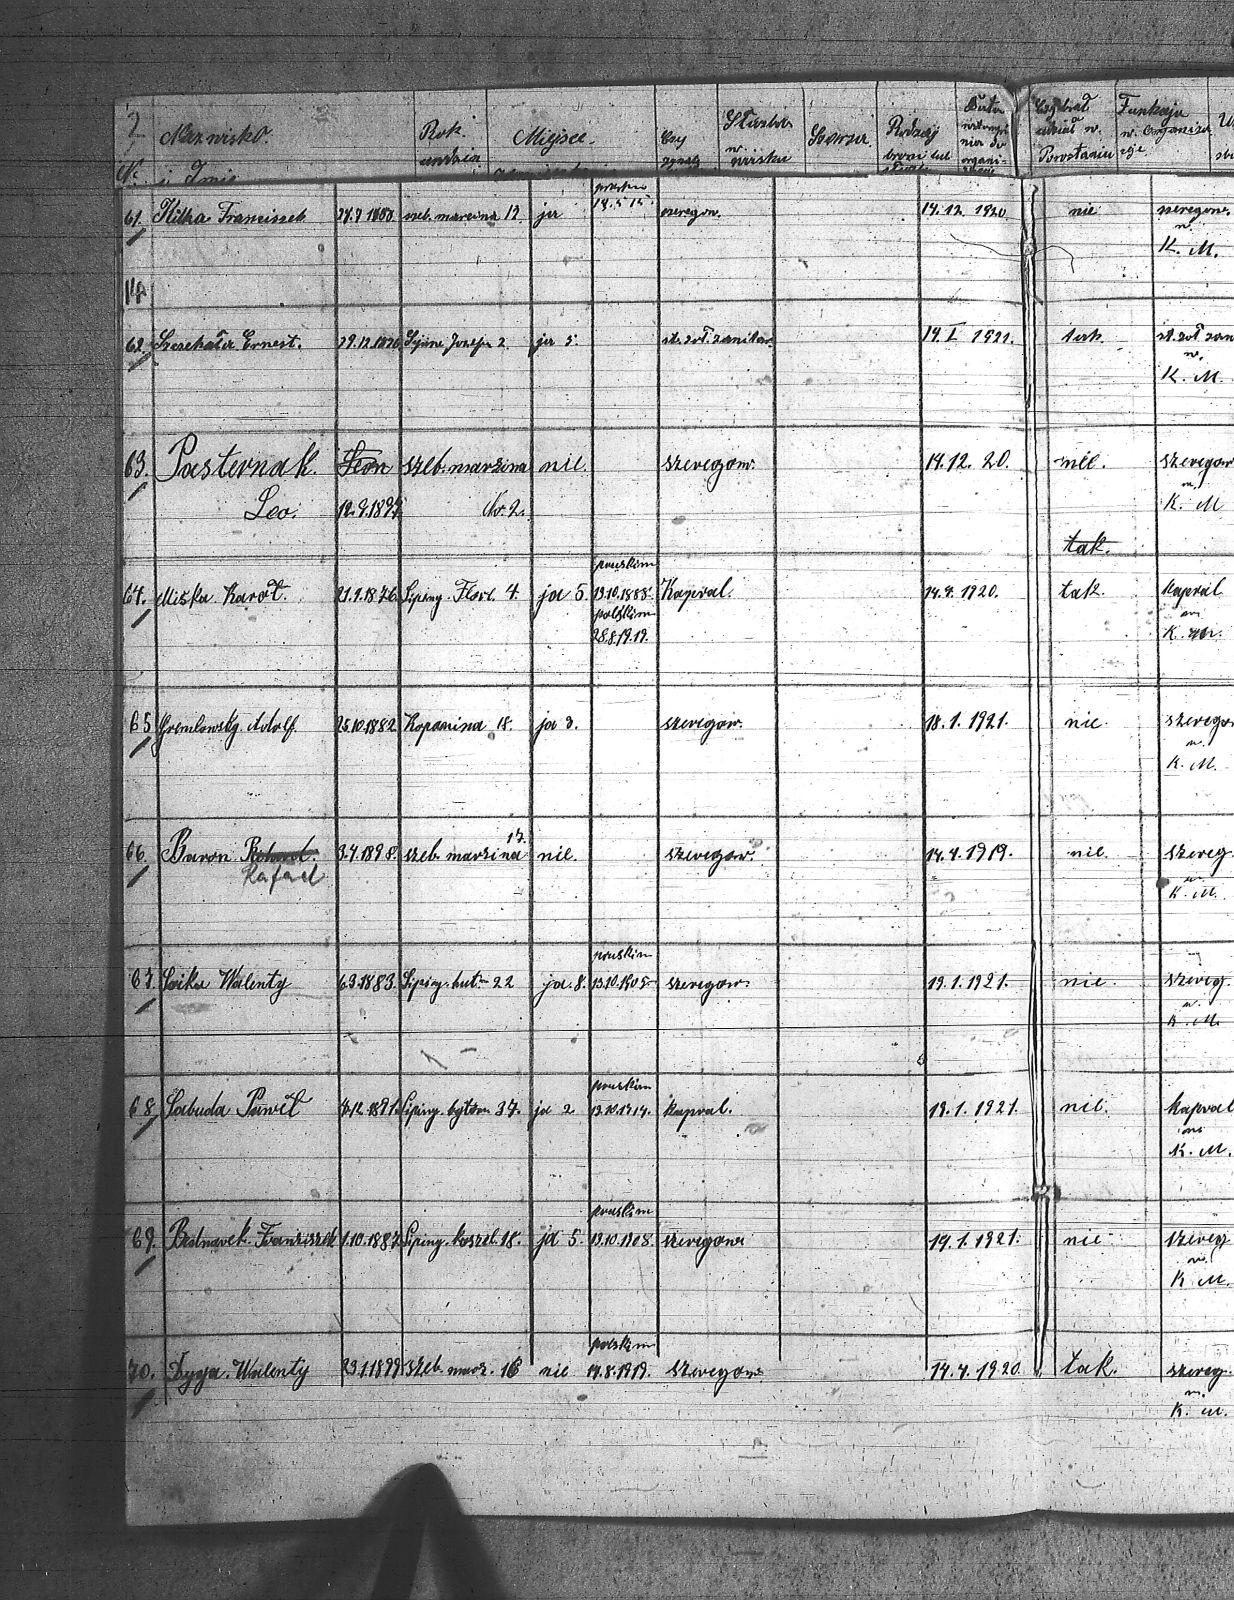 2 Nazwisko Rok Miejsce Czy Służba Szarża Rodzaj Data Czy brał Funkcja
№ i Imię urodzin w wojsku broni lub wstąpienia do organizacji udział w Powstaniu w Organizacyje
61. Franciszek szeb. marcina 12 ja 18.5.15. szeregow. 14.12.1920. nie szeregow.
w.
K. M.
62. Ernest. Józefa 2. ja 5. st. żoł. sanitar. 14. I 1921. tak st. żoł san
w.
K. M.
63. Pasternak. Leon szeb. marzina nie. szeregow. 14.12. 20. nie. szeregow
Leo. 12.9.1897 No. 2. w.
K. M
tak.
pruskim
64. Miska Karol. 21.1.1876. Lipiny Flor. 4. ja 5. 13.10.1888. Kapral. 14.4.1920. tak. kapral
polskim w
28.8.19.19. K. M.
65 Adolf. 25.10.1882 Kopanina 18. ja 3. szeregow. 18.1.1921. nie. szeregow
w.
K. M.
17.
66. Baron 3.4.1898. szeb. marzina nie. szeregow. 14.4.1919. nie. szereg.
Rafael w.
K. M.
pruskim
67. Walenty 6.3.1883. Lipiny. hut 22 ja. 8. 13.10.1905 szeregow. 19.1.1921. nie. szereg.
w.
K. M.
pruskim
68. Labuda Paweł Lipiny. bytom 37. ja 2 13.10.1914. kapral. 19.1.1921. nie. kapral
w
K. M.
pruskim
69. Bednarek. Franziszek 1.10.1887. Lipiny. koszel. 18. ja 5. 13.10.1908 szeregow 14.1.1921. nie szereg
w.
K. M.
polskim
70. Dyga. Walenty 23.1.1899 szeb. marz. 16 nie 14.8.1919. szeregow. 14.4.1920. tak. szereg.
w.
K. M.